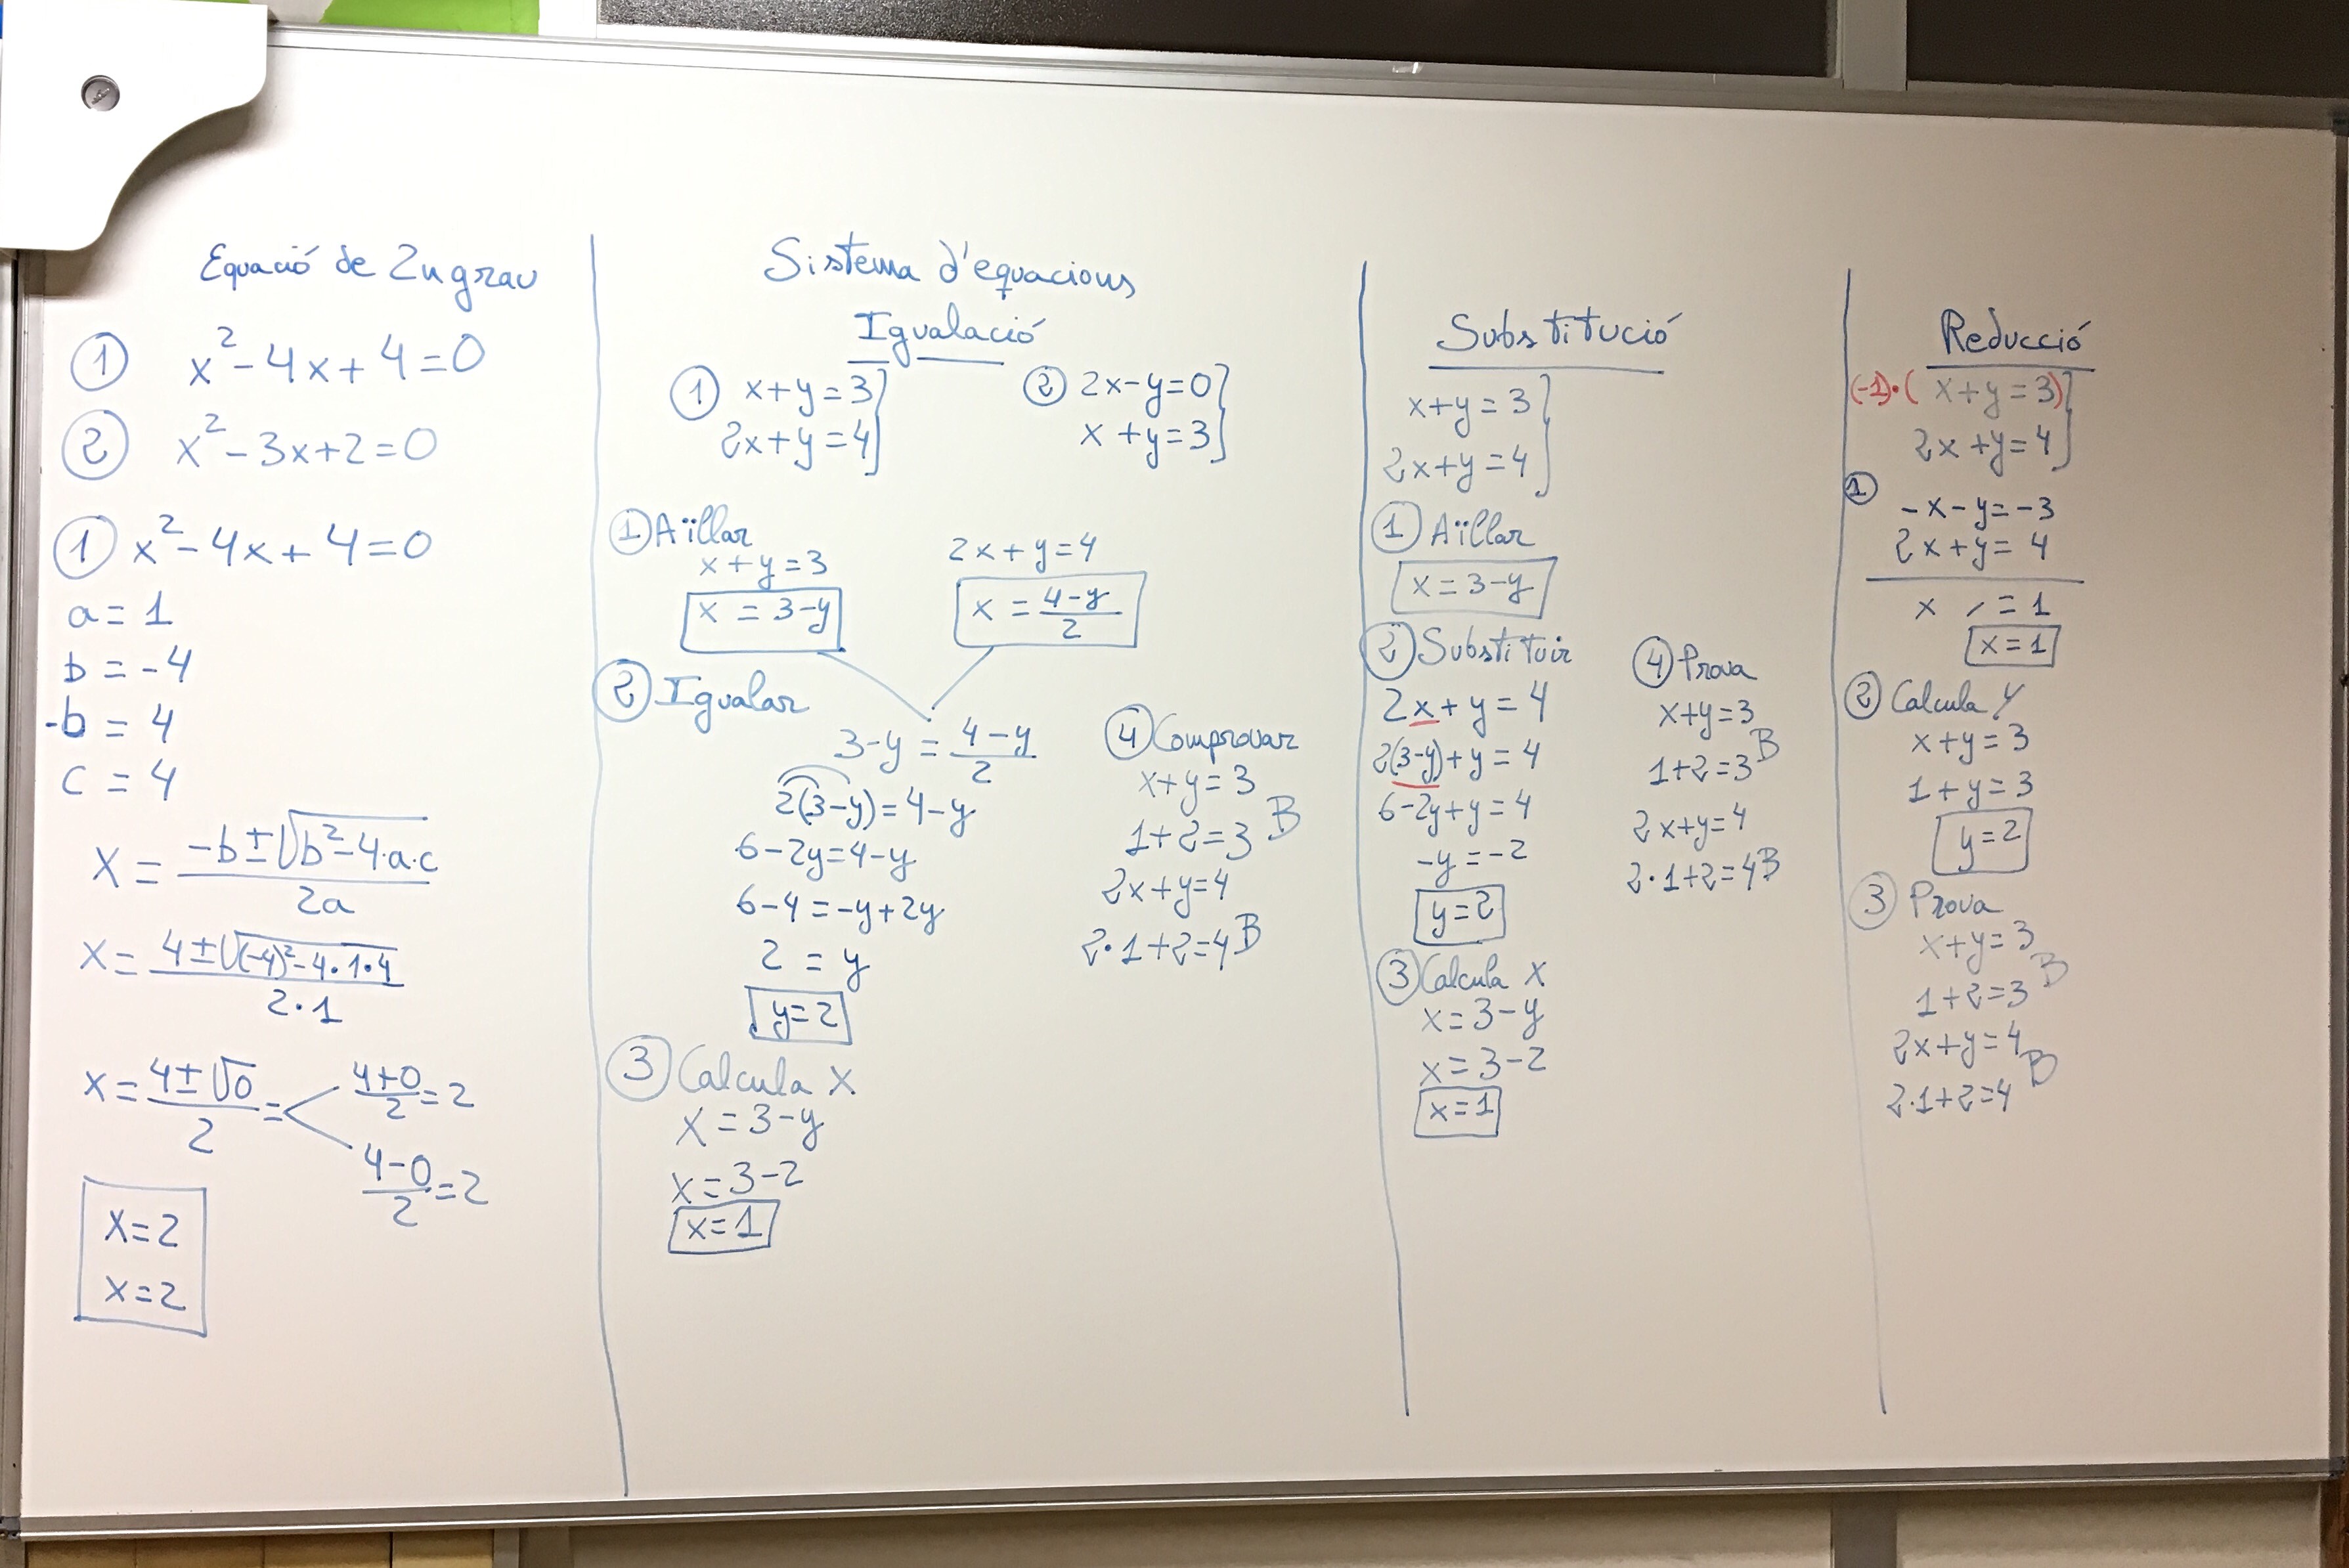 Equació de 2n grau
① x²-4x+4=0
② x²-3x+2=0
① x²-4x+4=0
a=1
b=-4
-b=4
c=4
x= -b±√b²-4·a·c / 2a
x= 4±√(-4)²-4·1·4 / 2·1
x= 4±√0 / 2 = < 4+0/2=2
4-0/2=2
x=2
x=2
Sistema d'equacions
Igualació
① x+y=3
2x+y=4
② 2x-y=0
x+y=3
① Aïllar
x+y=3
x=3-y
2x+y=4
x= 4-y / 2
② Igualar
3-y= 4-y / 2
2(3-y)=4-y
6-2y=4-y
6-4=-y+2y
2=y
y=2
③ Calcula X
x=3-y
x=3-2
x=1
④ Comprovar
x+y=3
1+2=3 B
2x+y=4
2·1+2=4 B
Substitució
x+y=3
2x+y=4
① Aïllar
x=3-y
② Substituir
2x+y=4
2(3-y)+y=4
6-2y+y=4
-y=-2
y=2
③ Calcula X
x=3-y
x=3-2
x=1
④ Prova
x+y=3
1+2=3 B
2x+y=4
2·1+2=4 B
Reducció
(-1)·(x+y=3)
2x+y=4
①
-x-y=-3
2x+y=4
x / =1
x=1
② Calcula Y
x+y=3
1+y=3
y=2
③ Prova
x+y=3
1+2=3 B
2x+y=4
2·1+2=4 B